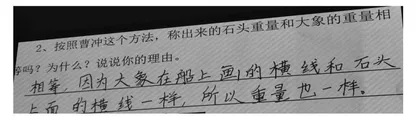 2、按照曹冲这个方法，称出来的石头重量和大象的重量相
等吗？为什么？说说你的理由。
相等，因为大象在船上画的横线和石头
上面的横线一样，所以重量也一样。